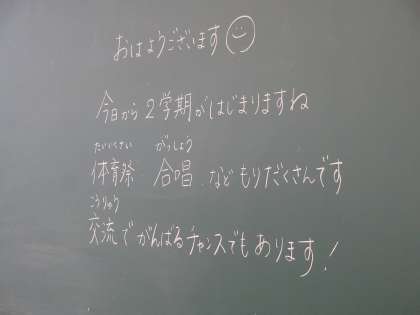 おはようございます
今日から2学期がはじまりますね
たいいくさい がっしょう
体育祭 合唱 などもりだくさんです
こうりゅう
交流でがんばるチャンスでもあります!